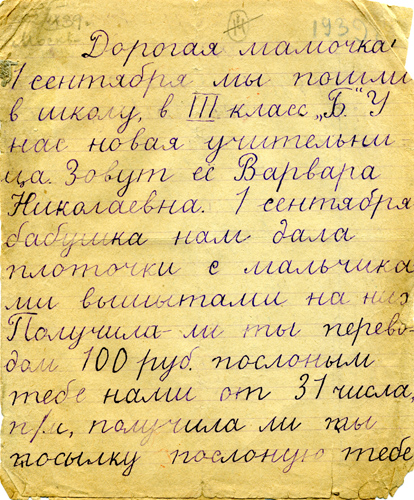 1939
Дорогая мамочка!
1 сентября мы пошли
в школу, в III класс „Б“. У
нас новая учительни
ца. Зовут её Варвара
Николаевна. 1 сентября
бабушка нам дала
плоточки с мальчика
ми вышытами на них
Получила ли ты перево-
дом 100 руб. послоным
тебе нами от 31 числа,
получила ли ты
посылку послоную тебе